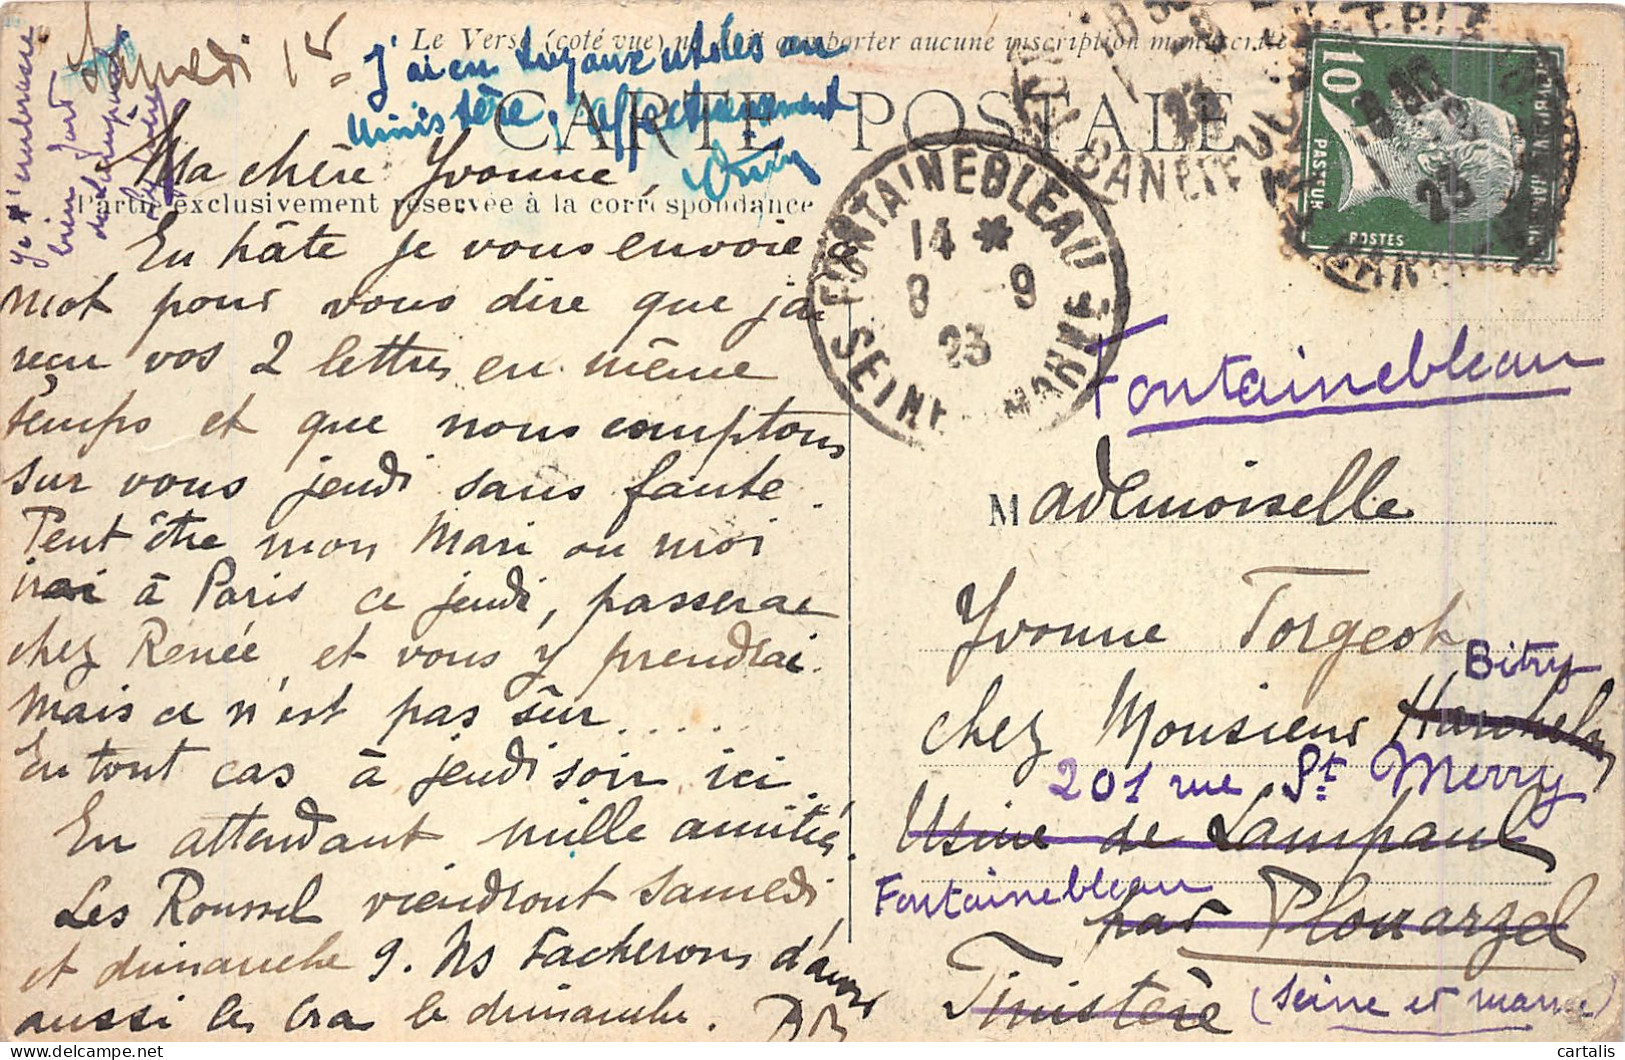 Le Verso (coté vue) ne doit comporter aucune inscription manuscrite
CARTE POSTALE
Partie exclusivement réservée à la correspondance
Samedi 1er
J'ai eu tuyaux utiles au
Ministère, affectueusement
Je m'intéresse
bien fort
Ma chère Yvonne,
En hâte je vous envoie ce
mot pour vous dire que j'ai
reçu vos 2 lettres en même
temps et que nous comptons
sur vous jeudi sans faute.
Peut être mon Mari ou moi
irai à Paris ce jeudi, passerai
chez Renée, et vous y prendrai.
Mais ce n'est pas sûr.....
En tout cas à jeudi soir ici.
En attendant mille amitiés.
Les Roussel viendront samedi
et dimanche 9. Ns tacherons d'avoir
aussi les Bra le dimanche.
FONTAINEBLEAU
14 *
8 - 9
23
SEINE ET MARNE
10c
PASTEUR
POSTES
Fontainebleau
Mademoiselle
Yvonne Torgeot
Bitry
chez Monsieur
201 rue St Merry
Usine de Lampaul
Fontainebleau
par Plouarzel
Finistère (Seine et marne)
cartalis